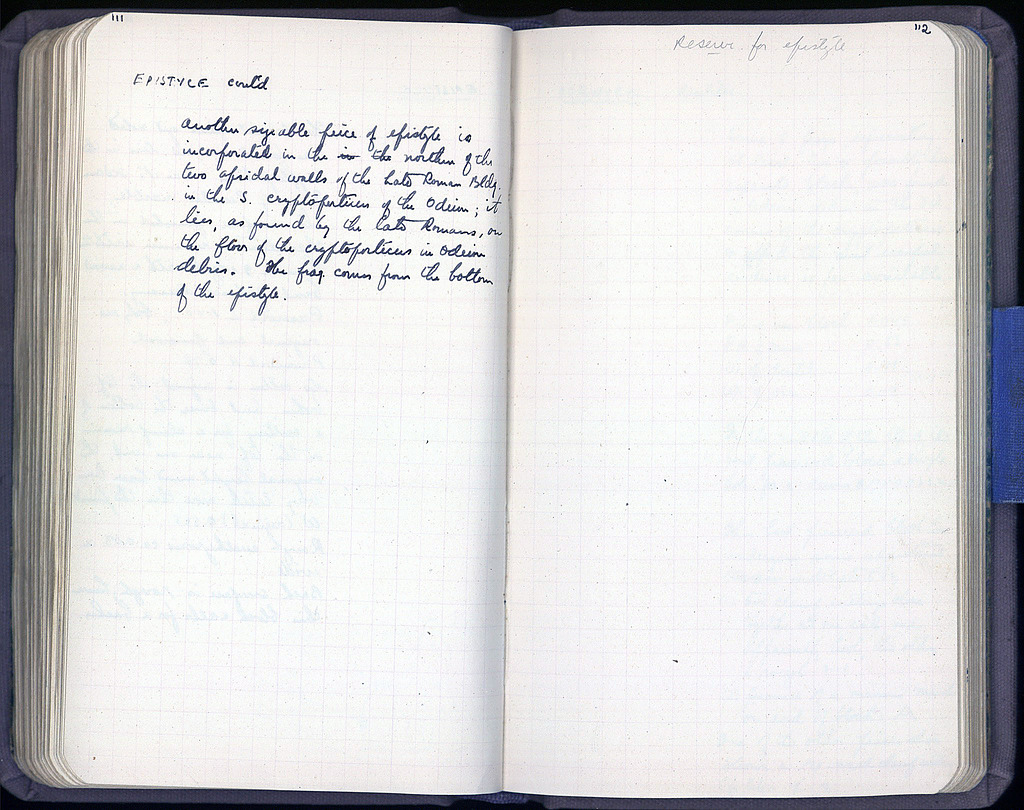 111
EPISTYLE cont'd
Another sizeable piece of epistyle is
incorporated in the in the northern of the
two apsidal walls of the Late Roman Bldg.
in the S. cryptoporticus of the Odeion; it
lies, as found by the late Romans, on
the floor of the cryptoporticus in Odeion
debris. The frag. comes from the bottom
of the epistyle.
112
Reserve for epistyle